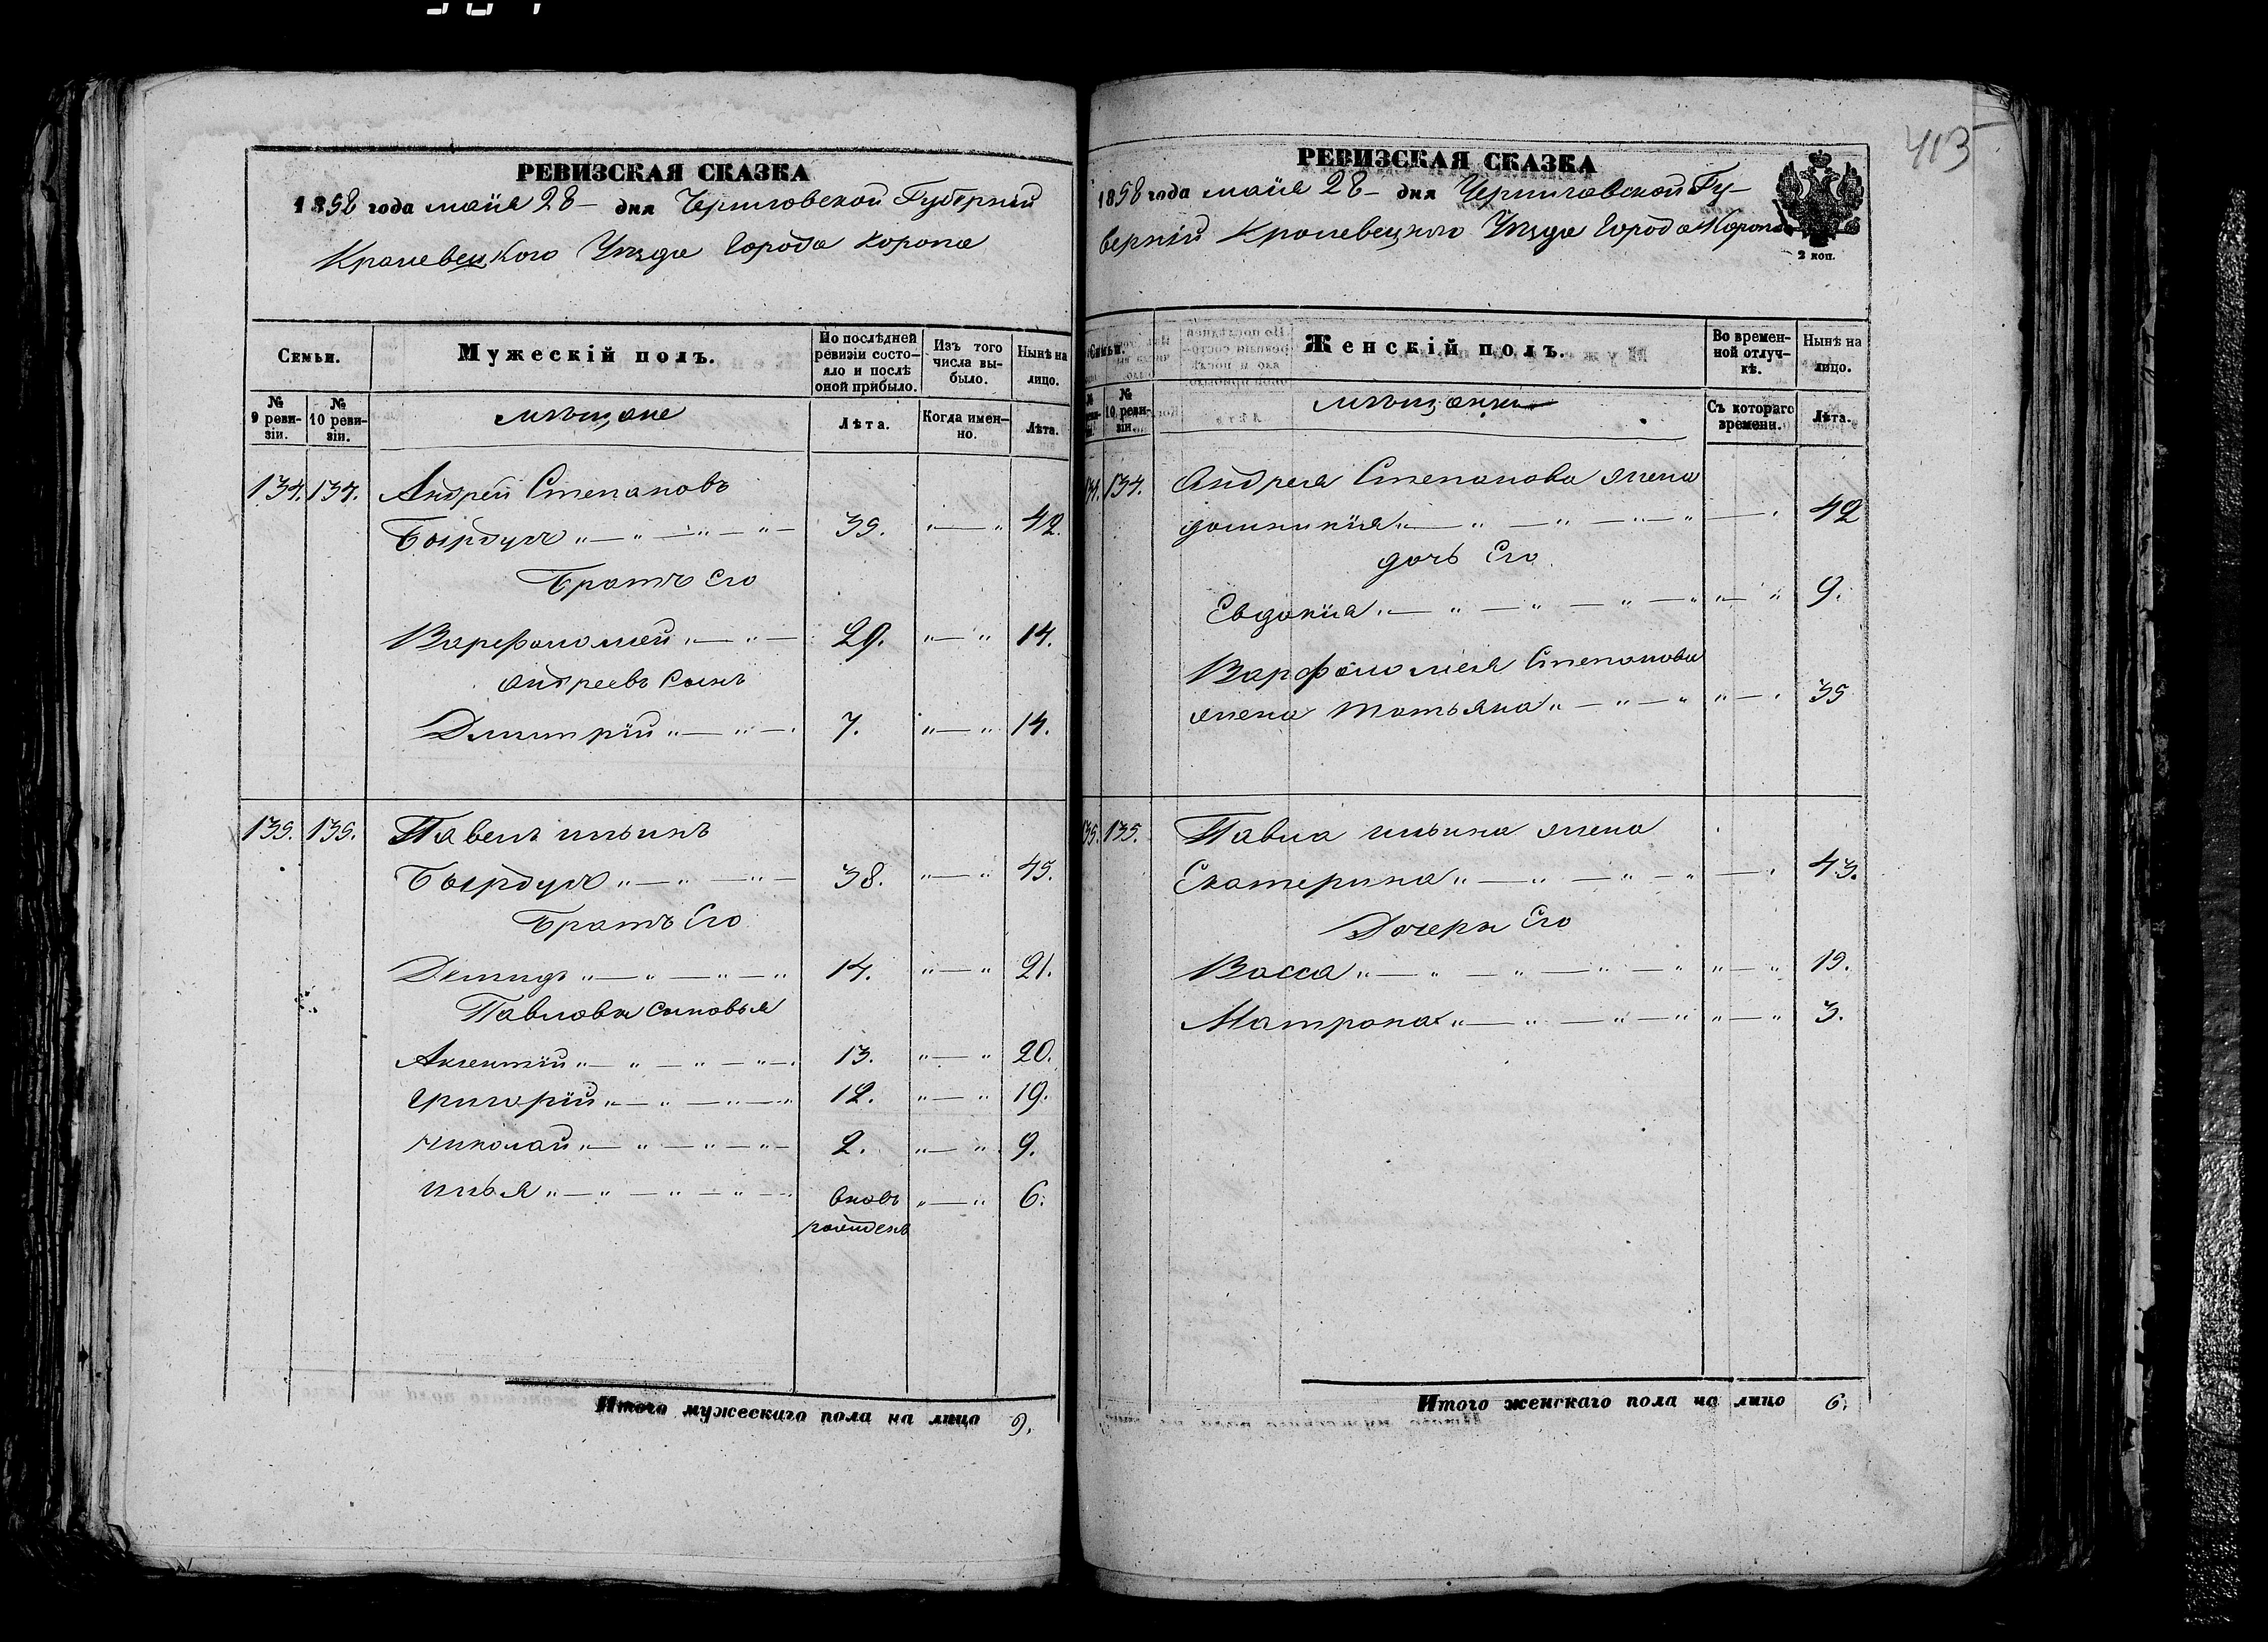 413
РЕВИЗСКАЯ СКАЗКА
1858 года маія 28 - дня Черниговской Губерніи
Кролевецкого Уѣзда Города Коропа
Семьи.
Мужескій полъ.
По послѣдней ревизіи состояло и послѣ оной прибыло.
Изъ того числа выбыло.
Нынѣ на лицо.
№ 9 ревизіи.
№ 10 ревизіи.
мѣщане
Лѣта.
Когда именно.
Лѣта.
134. 134. Андрей Степановъ
35. 42.
Братъ Его
Варфоломей 29. 14.
Андреевъ Сынъ
Дмитрій 7. 14.
135. 135. Павелъ ильинъ
38. 45.
Братъ Его
Демидъ 14. 21.
Павловы сыновья
Аксентій 13. 20.
Григорій 12. 19.
Николай 2. 9.
илья вновь 6.
рожденъ
Итого мужескаго пола на лицо 9.
РЕВИЗСКАЯ СКАЗКА
1858 года маія 28 - дня Черниговской Гу-
берніи Кролевецкого Уѣзда Города Коропа
2 коп.
Семьи.
Женскій полъ.
Во временной отлучкѣ.
Нынѣ на лицо.
№ 10 ревизіи.
мѣщанки
Съ котораго времени.
Лѣта.
134. 134. Андрея Степанова жена
домникія 42
дочь Его
Евдокія 9.
Варфоломея Степанова
жена татьяна 35
135. 135. Павла ильина жена
Екатерина 43.
Дочери Его
Васса 19.
Матрона 3.
Итого женскаго пола на лицо 6.